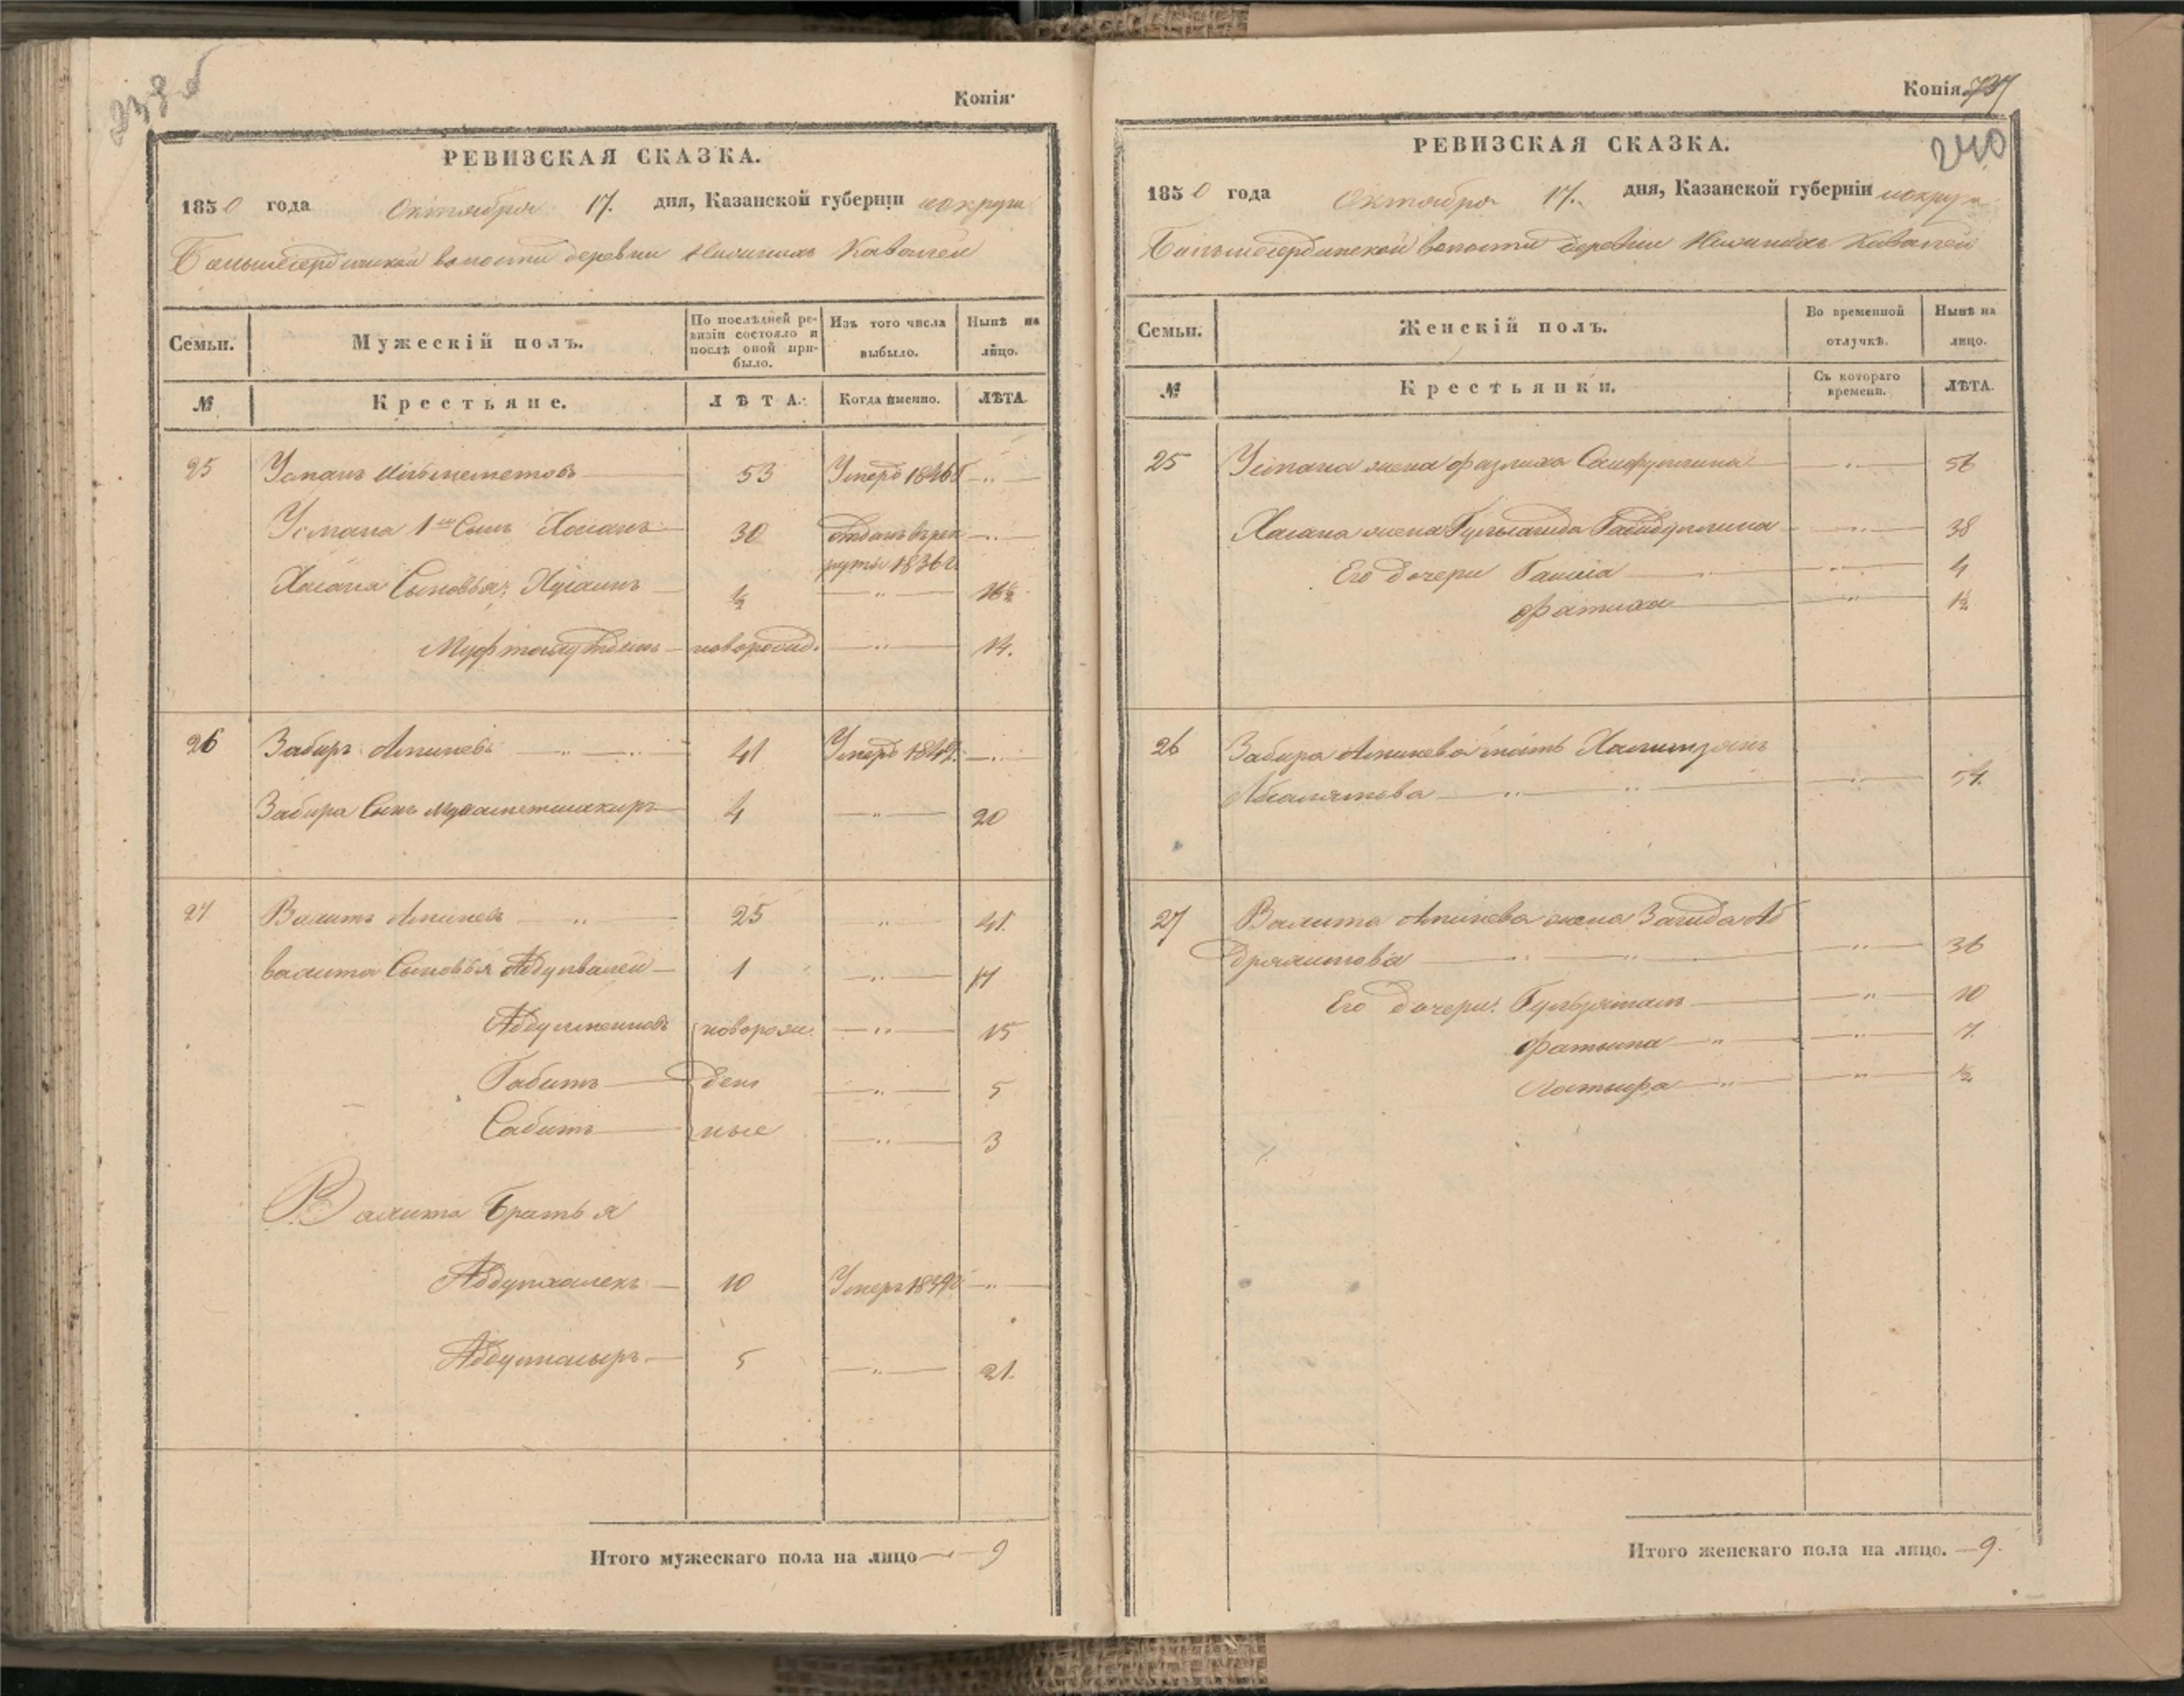 239 об
Копія.
РЕВИЗСКАЯ СКАЗКА.
1850 года Октября 17. дня, Казанской губерніи и округи
Большесердинской волости деревни Нижнихъ Кавалей
Семьи.
Мужескій полъ.
По послѣдней ре-
визіи состояло и
послѣ оной при-
было.
Изъ того числа
выбыло.
Нынѣ на
лицо.
№
Крестьяне.
ЛѢТА.
Когда именно.
ЛѢТА.
25 Усманъ 53 Умеръ 1846 г
Усмана 1й Сынъ Хасанъ 30 отданъ въ рек
руты 1836 г.
Хасана Сыновья: Хусаинъ ½ — " — 16½
новорожд. — " — 14.
26 Забиръ Аминевъ — " — 41 Умеръ
Забира Сынъ Мухаметшакиръ 4 — " — 20
27 Валитъ Аминевъ — " — 25 " 41
Валита Сыновья Абдулвалей 1 — " — 17
новорож. — " — 15
Габитъ ден — " — 5
Сабитъ ные — " — 3
Валита Братья
Абдулхалекъ 10 Умеръ — " —
Абдулнасыръ 5 — " — 21.
Итого мужескаго пола на лицо — 9
Копія. 737
240
РЕВИЗСКАЯ СКАЗКА.
1850 года Октября 17. дня, Казанской губерніи и округи
Большесердинской волости деревни Нижнихъ Кавалей
Семьи.
Женскій полъ.
Во временной
отлучкѣ.
Нынѣ на
лицо.
№
Крестьянки.
Съ котораго
времени.
ЛѢТА.
25 Усмана жена Фазлиха Сайфуллина — " — 56
Хасана жена Габидуллина — " — 38
Его дочери — " — 4
Фатиха — " — 1½
26 Забира Аминева мать
— " — 54.
27 Валита Аминева жена Загида Аб
дряшитова — " — 36
Его дочери: — " — 10
Фатыма — " — " — 7.
— " — " — ½
Итого женскаго пола на лицо. — 9.